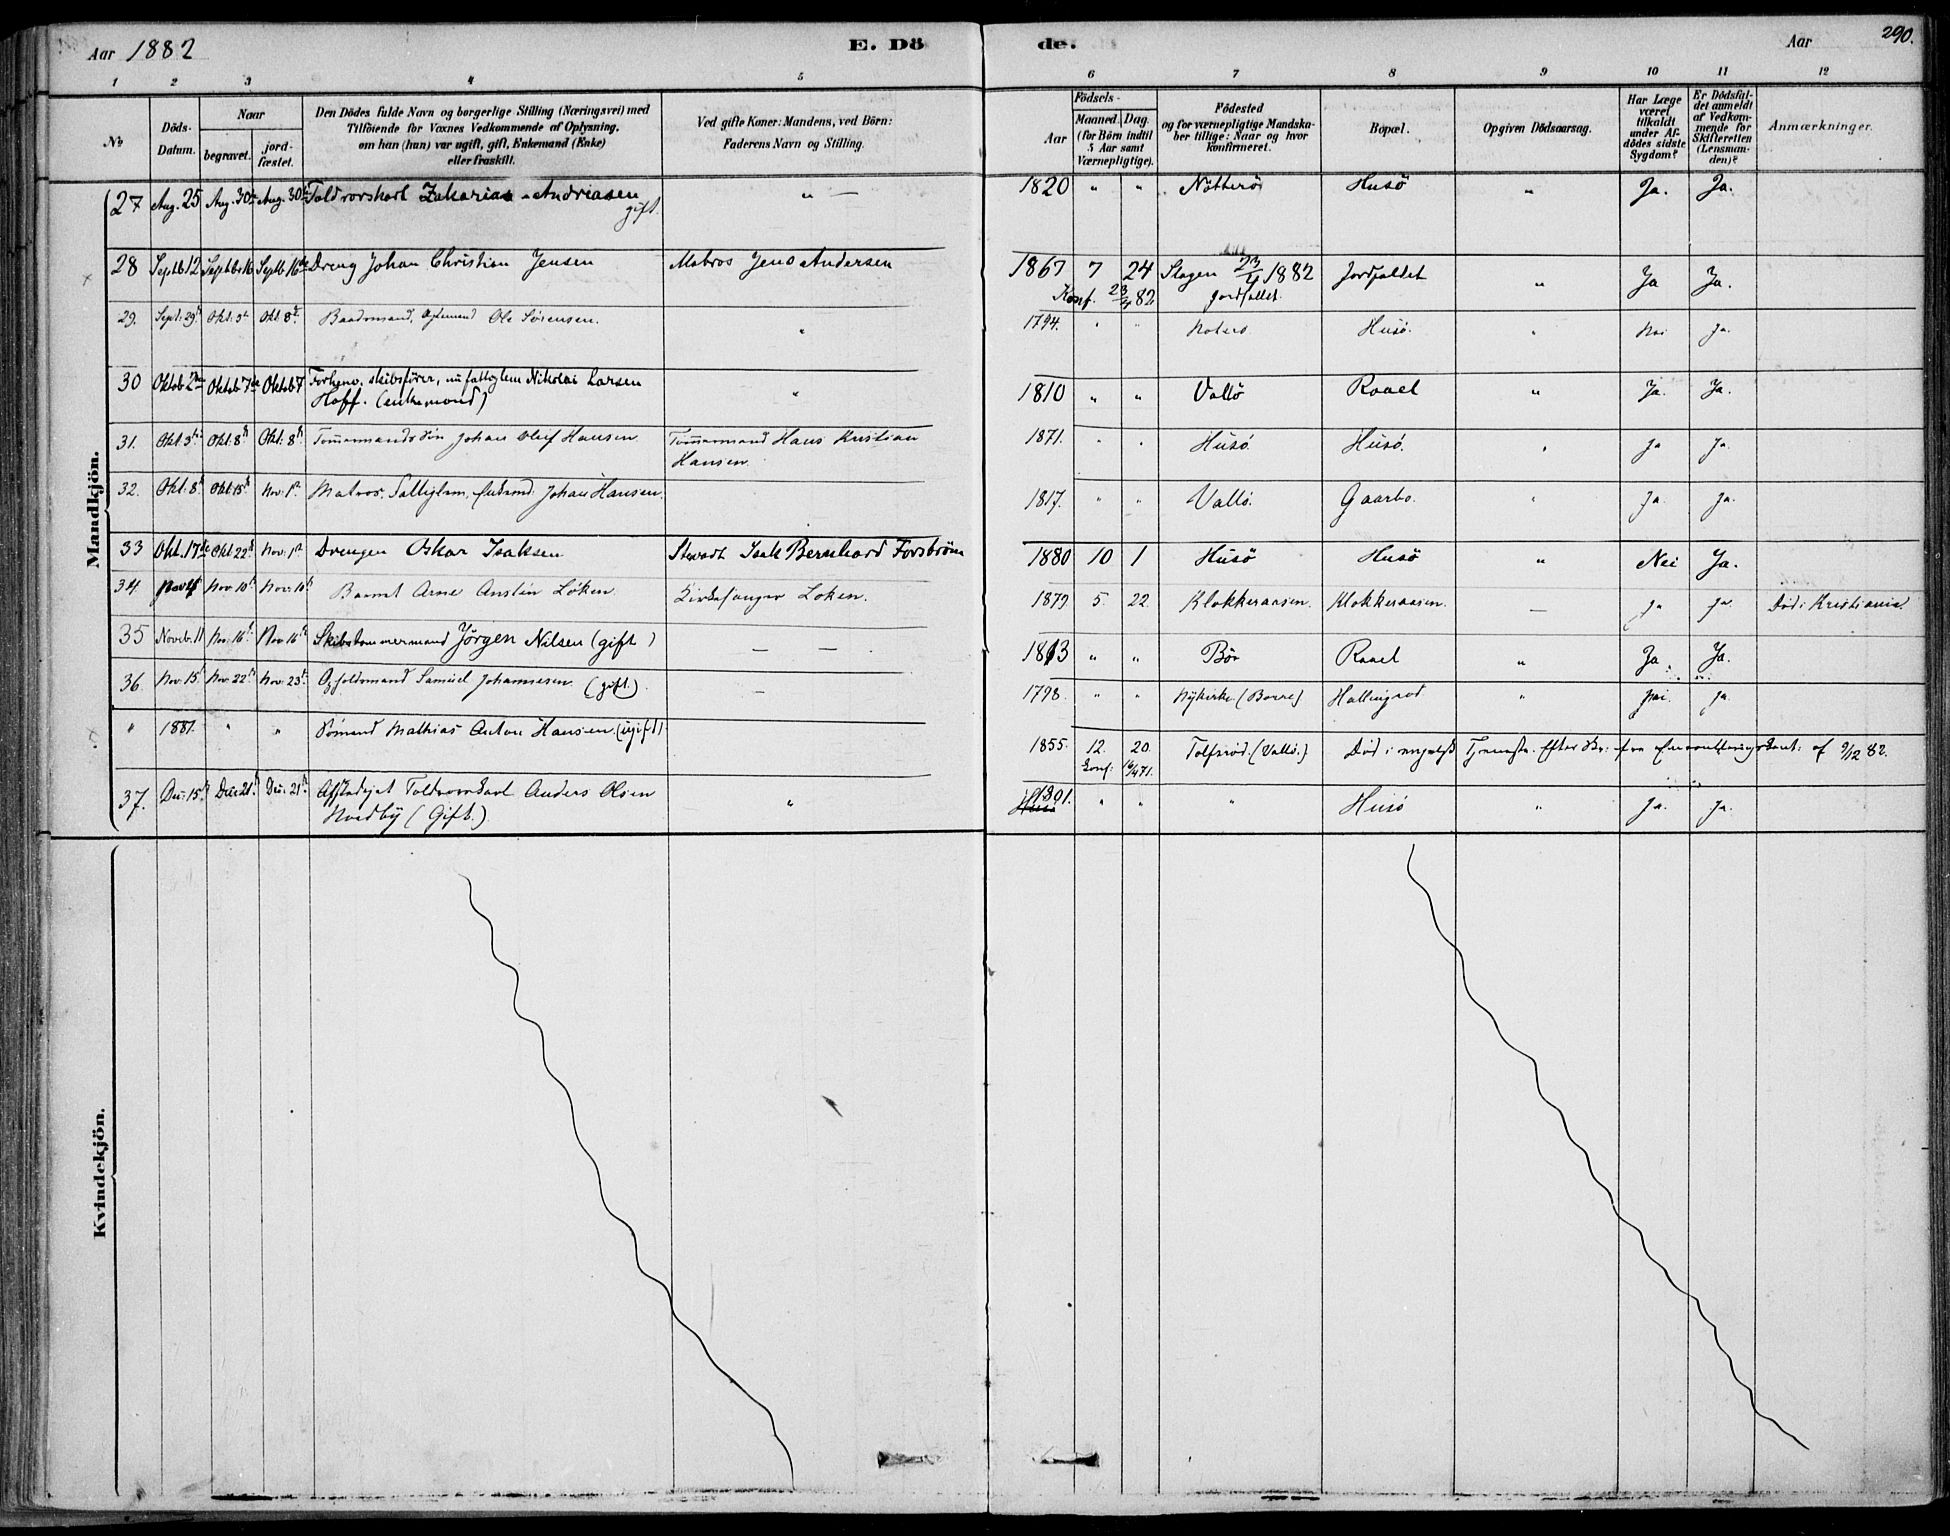 Aar 1882
E. Dö
de.
Aar
290.
1 2 3 4 5 6 7 8 9 10 11 12
No
Döds-Datum.
Naar
begravet.
jord-fæstet.
Den Dödes fulde Navn og borgerlige Stilling (Næringsvei) med
Tilföiende for Voxnes Vedkommende af Oplysning,
om han (hun) var ugift, gift, Enkemand (Enke)
eller fraskilt.
Ved gifte Koner: Mandens, ved Börn:
Faderens Navn og Stilling.
Födsels-
Aar
Maaned. Dag.
(for Börn indtil
5 Aar samt
Værnepligtige).
Födested
og for værnepligtige Mandska-
ber tillige: Naar og hvor
Konfirmeret.
Bopæl.
Opgiven Dödsaarsag.
Har Læge
været
tilkaldt
under Af-
dödes sidste
Sygdom?
Er Dödsfal-
det anmeldt
af Vedkom-
mende for
Skifteretten
(Lensman-
den)?
Anmærkninger.
Mandkjön.
27 Aug. 25 Aug. 30 Aug. 30 Toldrorskarl Zakarias Andriasen " — 1820 " " Nötterö Husö " Ja. Ja.
gift.
28 Septb. 12 Septbr 16 Septb. 16de Dreng Johan Christian Jensen Matros Jens Andersen 1867 7 24 Slagen 23/4 1882 Jordfaldet " Ja Ja.
Konf. 23/4 82 Jordfaldet.
29. Sept. 29 Okt. 3 Okt. 8 Baadsmand, Ole Sørensen. " 1794. " " Husö. " Nei Ja.
30 Oktob. 2 Oktob. 7de Oktob. 7 Forhenv. skibsfører, nu fattiglem Nikolai Larsen " 1810 " " Vallö Raael " Ja. Ja.
Hoff. (enkemand)
31. Okt. 3 Okt. 8 Okt. 8 Tømmermands søn Johan Oluf Hansen Tømmermand Hans Kristian 1871. " " Husö. Husö. " Ja Ja.
Hansen.
32. Okt. 8 Okt. 15 Nov. 1 Matros, Johan Hansen. 1817. " " Vallö. Gaarbo. " Ja. Ja.
33 Okt. 17de Okt. 22 Nov. 1 Drengen Oskar Isaksen Stevardt Isak Bernhard Forsbröm 1880 10 1 Husö Husö " Nei Ja.
34 Nov. 4 Nov. 10 Nov. 10 Barnet Arne Anstin Löken. Kirkesanger Løken. 1879 5. 22. Klokkeraasen. Klokkeraasen. — Ja Ja. Død i Kristiania.
35 Novb. 11 Nov. 16 Nov. 16 Skibstømmermand Jörgen Nilsen (gift) — — 1813 " " Bör Raael " Ja. Ja.
36. Nov. 15 Nov. 22 Nov. 23 Samuel Johannesen (gift). — 1798. " " Nykirke (Borre) " Nei. Ja.
" 1881. " " Sømand Mathias Anton Hansen. (ugift) 1855. 12. 20. Tolfsrød. (Vallö.) Død i engelsk Tjeneste. Efter Skr: fra af 9/12 82.
Konf.
37. Dec. 15 Dec. 21 Dec. 21 Afskediget Toldrorskarl Anders Olsen " 1801. " " " Husö " Ja. Ja.
Nordby (Gift.)
Kvindekjön.